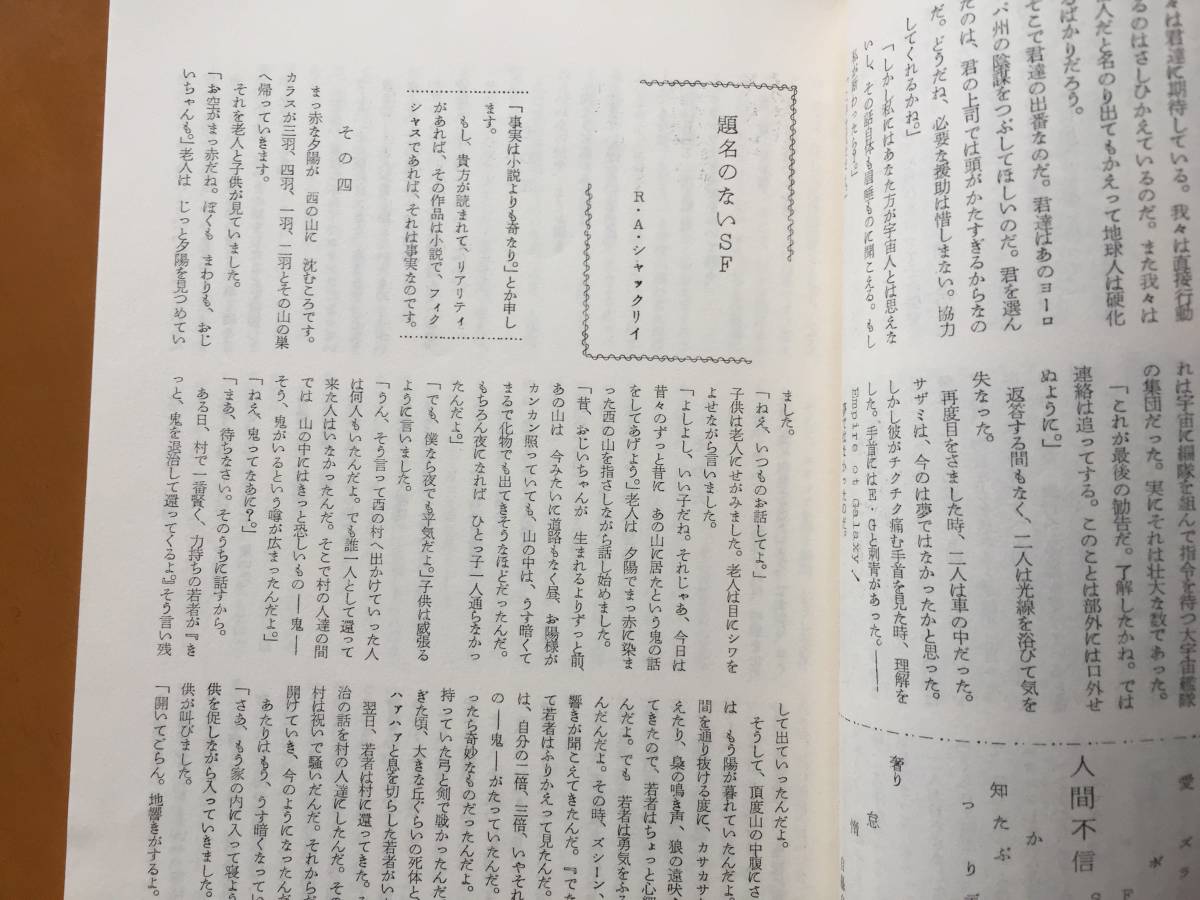 々は君達に期待している。我々は直接行動
るのはさしひかえているのだ。また我々は
人だと名のり出てもかえって地球人は硬化
るばかりだろう。
そこで君達の出番なのだ。君達はあのヨーロ
パ州の陰謀をつぶしてほしいのだ。君を選ん
たのは、君の上司では頭がかたすぎるからなの
だ。どうだね、必要な援助は惜しまない。協力
してくれるかね。」
「しかし私にはあなた方が宇宙人とは思えな
いし、その話自体も眉唾ものに聞こえる。もし
れは宇宙に編隊を組んで指令を待つ大宇宙艦隊
の集団だった。実にそれは壮大な数であった。
「これが最後の勧告だ。了解したかね。では
連絡は追ってする。このことは部外には口外せ
ぬように。」
返答する間もなく、二人は光線を浴びて気を
失なった。
再度目をさました時、二人は車の中だった。
サザミは、今のは夢ではなかったかと思った。
しかし彼がチクチク痛む手首を見た時、理解を
した。手首にはE・Gと刺青があった。――
Empire of Galaxy
人間不信
愛
ズ
ラ
ボ
か
知たぶ
っり
奢り
怠
憎
題名のないSF
R・A・シャックリイ
「事実は小説よりも奇なり。」とか申し
ます。
もし、貴方が読まれて、リアリティ
があれば、その作品は小説で、フィク
シャスであれば、それは事実なのです。
その四
まっ赤な夕陽が 西の山に 沈むころです。
カラスが三羽、四羽、一羽、二羽とその山の巣
へ帰っていきます。
それを老人と子供が見ていました。
「お空がまっ赤だね。ぼくも まわりも、おじ
いちゃんも。」老人は じっと夕陽を見つめてい
ました。
「ねえ、いつものお話してよ。」
子供は老人にせがみました。老人は目にシワを
よせながら言いました。
「よしよし、いい子だね。それじゃあ、今日は
昔々のずっと昔に あの山に居たという鬼の話
をしてあげよう。」老人は 夕陽でまっ赤に染ま
った西の山を指さしながら話し始めました。
「昔、おじいちゃんが 生まれるよりずっと前、
あの山は 今みたいに道路もなく昼、お陽様が
カンカン照っていても、山の中は、うす暗くて
まるで化物でも出てきそうなほどだったんだ。
もちろん夜になれば ひとっ子一人通らなかっ
たんだよ。」
「でも、僕なら夜でも平気だよ。」子供は威張る
ように言いました。
「うん、そう言って西の村へ出かけていった人
は何人もいたんだよ。でも誰一人として還って
来た人はいなかったんだ。そこで村の人達の間
では 山の中にはきっと恐しいもの――鬼――
そう、鬼がいるという噂が広まったんだよ。」
「ねえ、鬼ってなあに？。」
「まあ、待ちなさい。そのうちに話すから。
ある日、村で一番賢く、力持ちの若者が『き
っと、鬼を退治して還ってくるよ。』そう言い残
して出ていったんだよ。
そうして、頂度山の中腹にさ
は もう陽が暮れていたんだよ。
間を通り抜ける度に、カサカサ
えたり、梟の鳴き声、狼の遠吠
てきたので、若者はちょっと心細
んだよ。でも 若者は勇気をふる
んだんだよ。その時、ズシーン、
響きが聞こえてきたんだ。『でた
て若者はふりかえって見たんだ。
は、自分の二倍、三倍、いやそれ
の――鬼――がたっていたんだ。
ったら奇妙なものだったんだよ。
持っていた弓と剣で戦かったんだ
ぎた頃、大きな丘ぐらいの死体と
ハァハァと息を切らした若者がい
翌日、若者は村に還ってきた。
治の話を村の人達にしたんだ。その
村は祝いで騒いだんだ。それからだ
開けていき、今のようになったんだ
あたりはもう、うす暗くなってい
「さあ、もう家の内に入って寝よう
供を促しながら入っていきました。
供が叫びました。
「聞いてごらん。地響きがするよ。